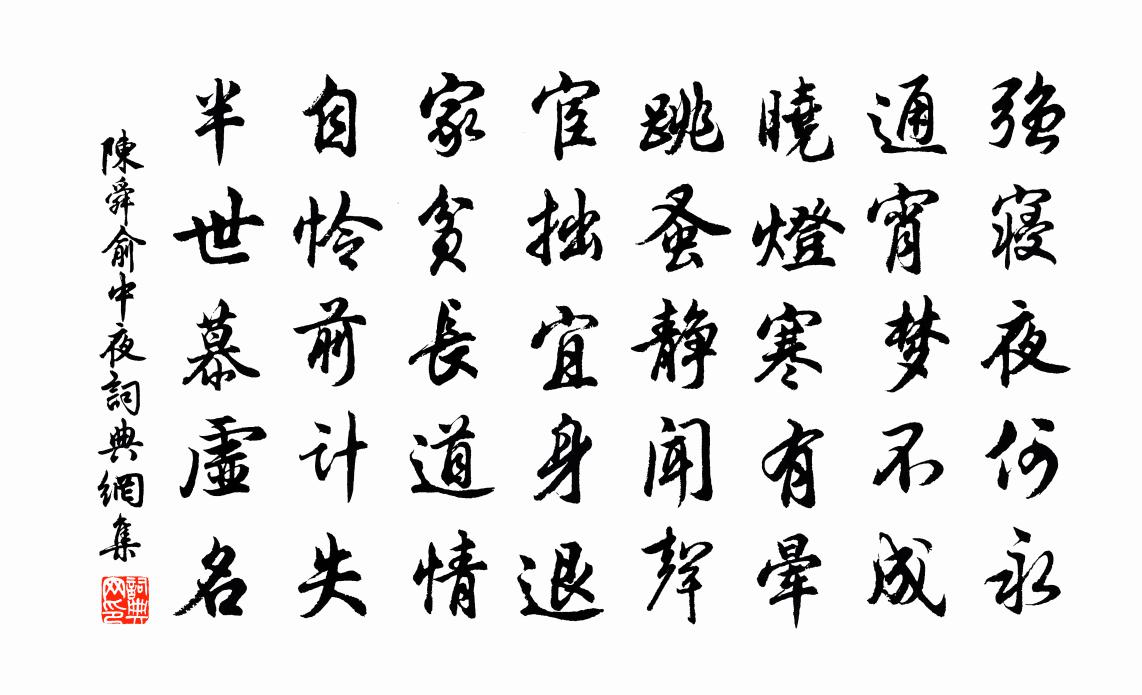 强寝夜何永
通宵梦不成
曉燈寒有暈
跳蚤静闻聲
宦拙宜身退
家貧長道情
自怜前计失
半世慕虛名
陳舜俞中夜詞典網集
詞典网印